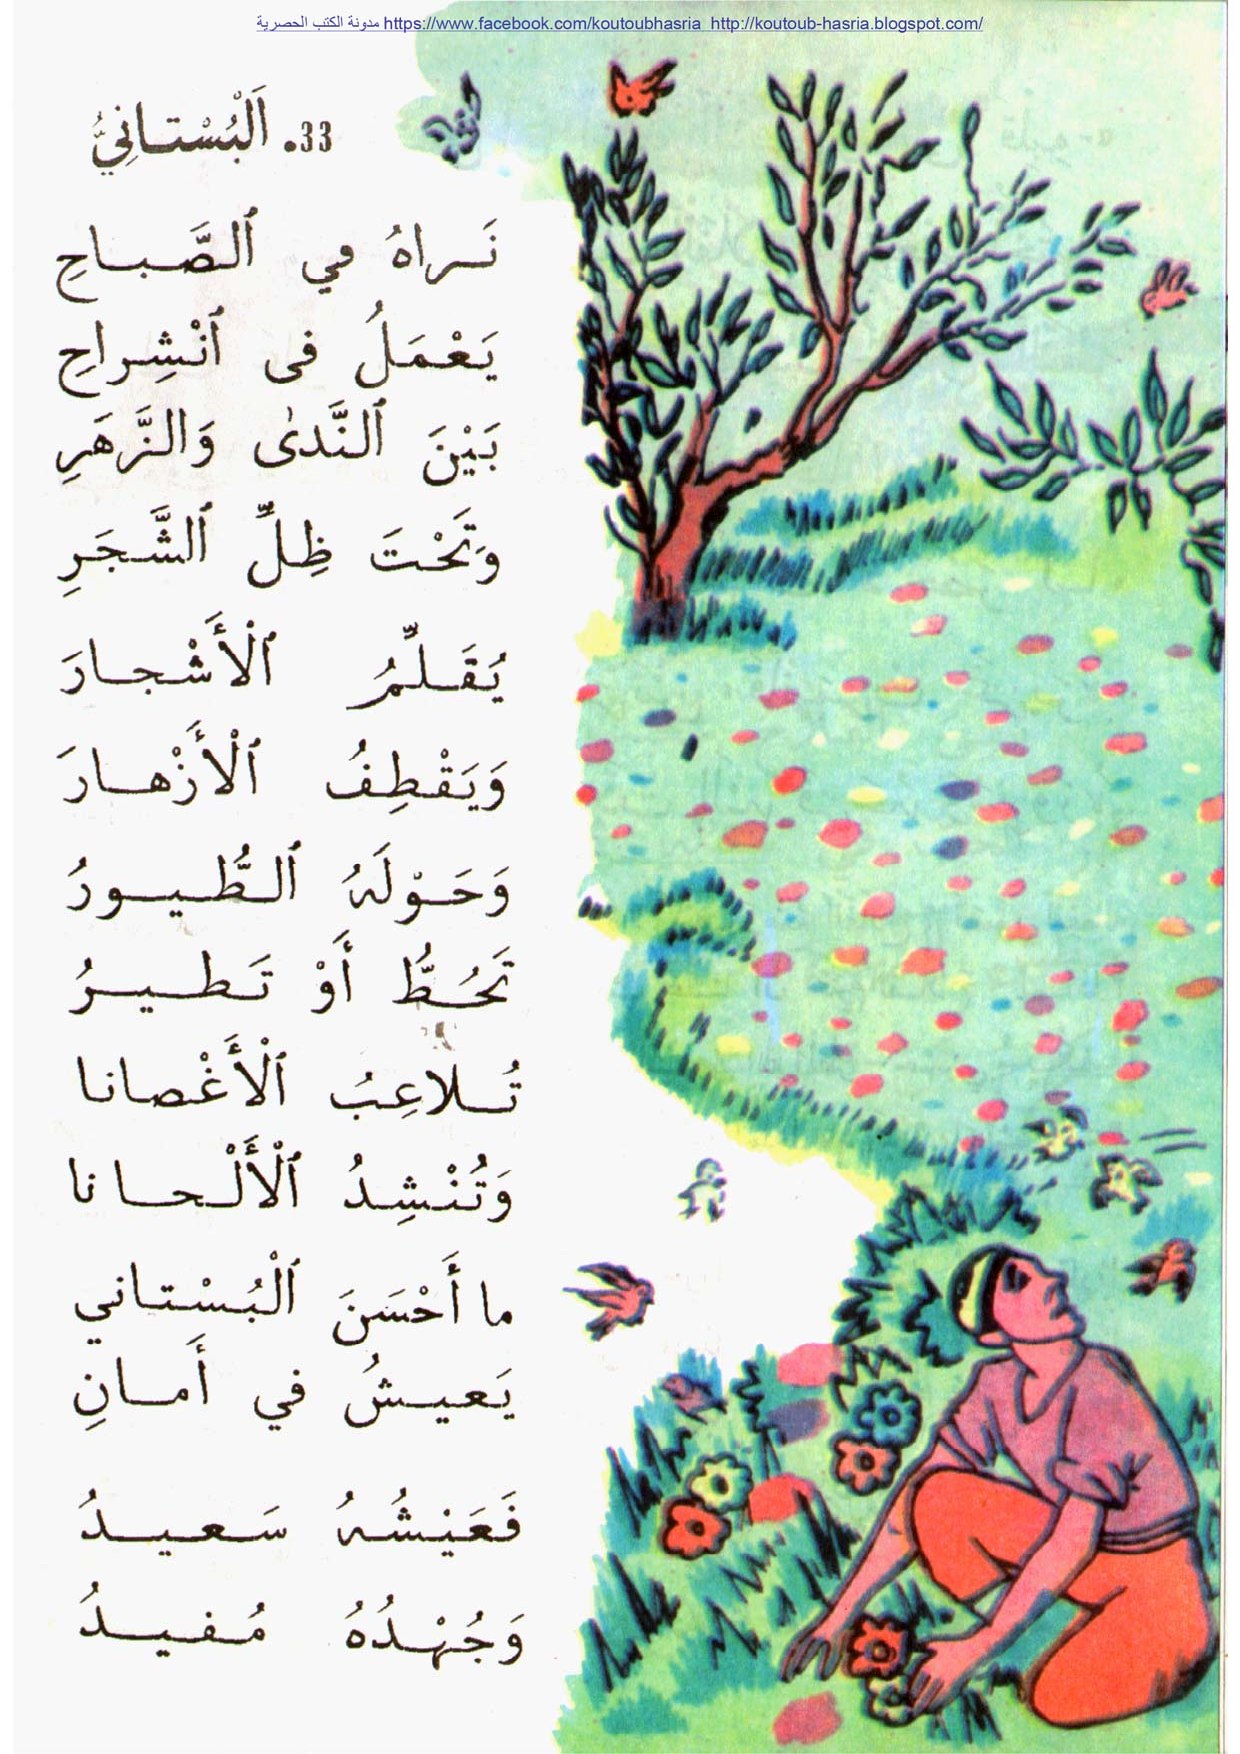 مدونة الكتب الحصرية https://www.facebook.com/koutoubhasria http://koutoub-hasria.blogspot.com/
33. اَلْبُسْتانِيُّ
نَراهُ في ٱلصَّباحِ
يَعْمَلُ فى ٱنْشِراحِ
بَيْنَ ٱلنَّدىٰ وَالزَّهَرِ
وَتَحْتَ ظِلِّ ٱلشَّجَرِ
يُقَلِّمُ ٱلْأَشْجارَ
وَيَقْطِفُ ٱلْأَزْهارَ
وَحَوْلَهُ ٱلطُّيورُ
تَحُطُّ أَوْ تَطيرُ
تُلاعِبُ ٱلْأَغْصانا
وَتُنْشِدُ ٱلْأَلْحانا
ما أَحْسَنَ ٱلْبُسْتاني
يَعيشُ في أَمانِ
فَعَيْشُهُ سَعيدُ
وَجُهْدُهُ مُفيدُ